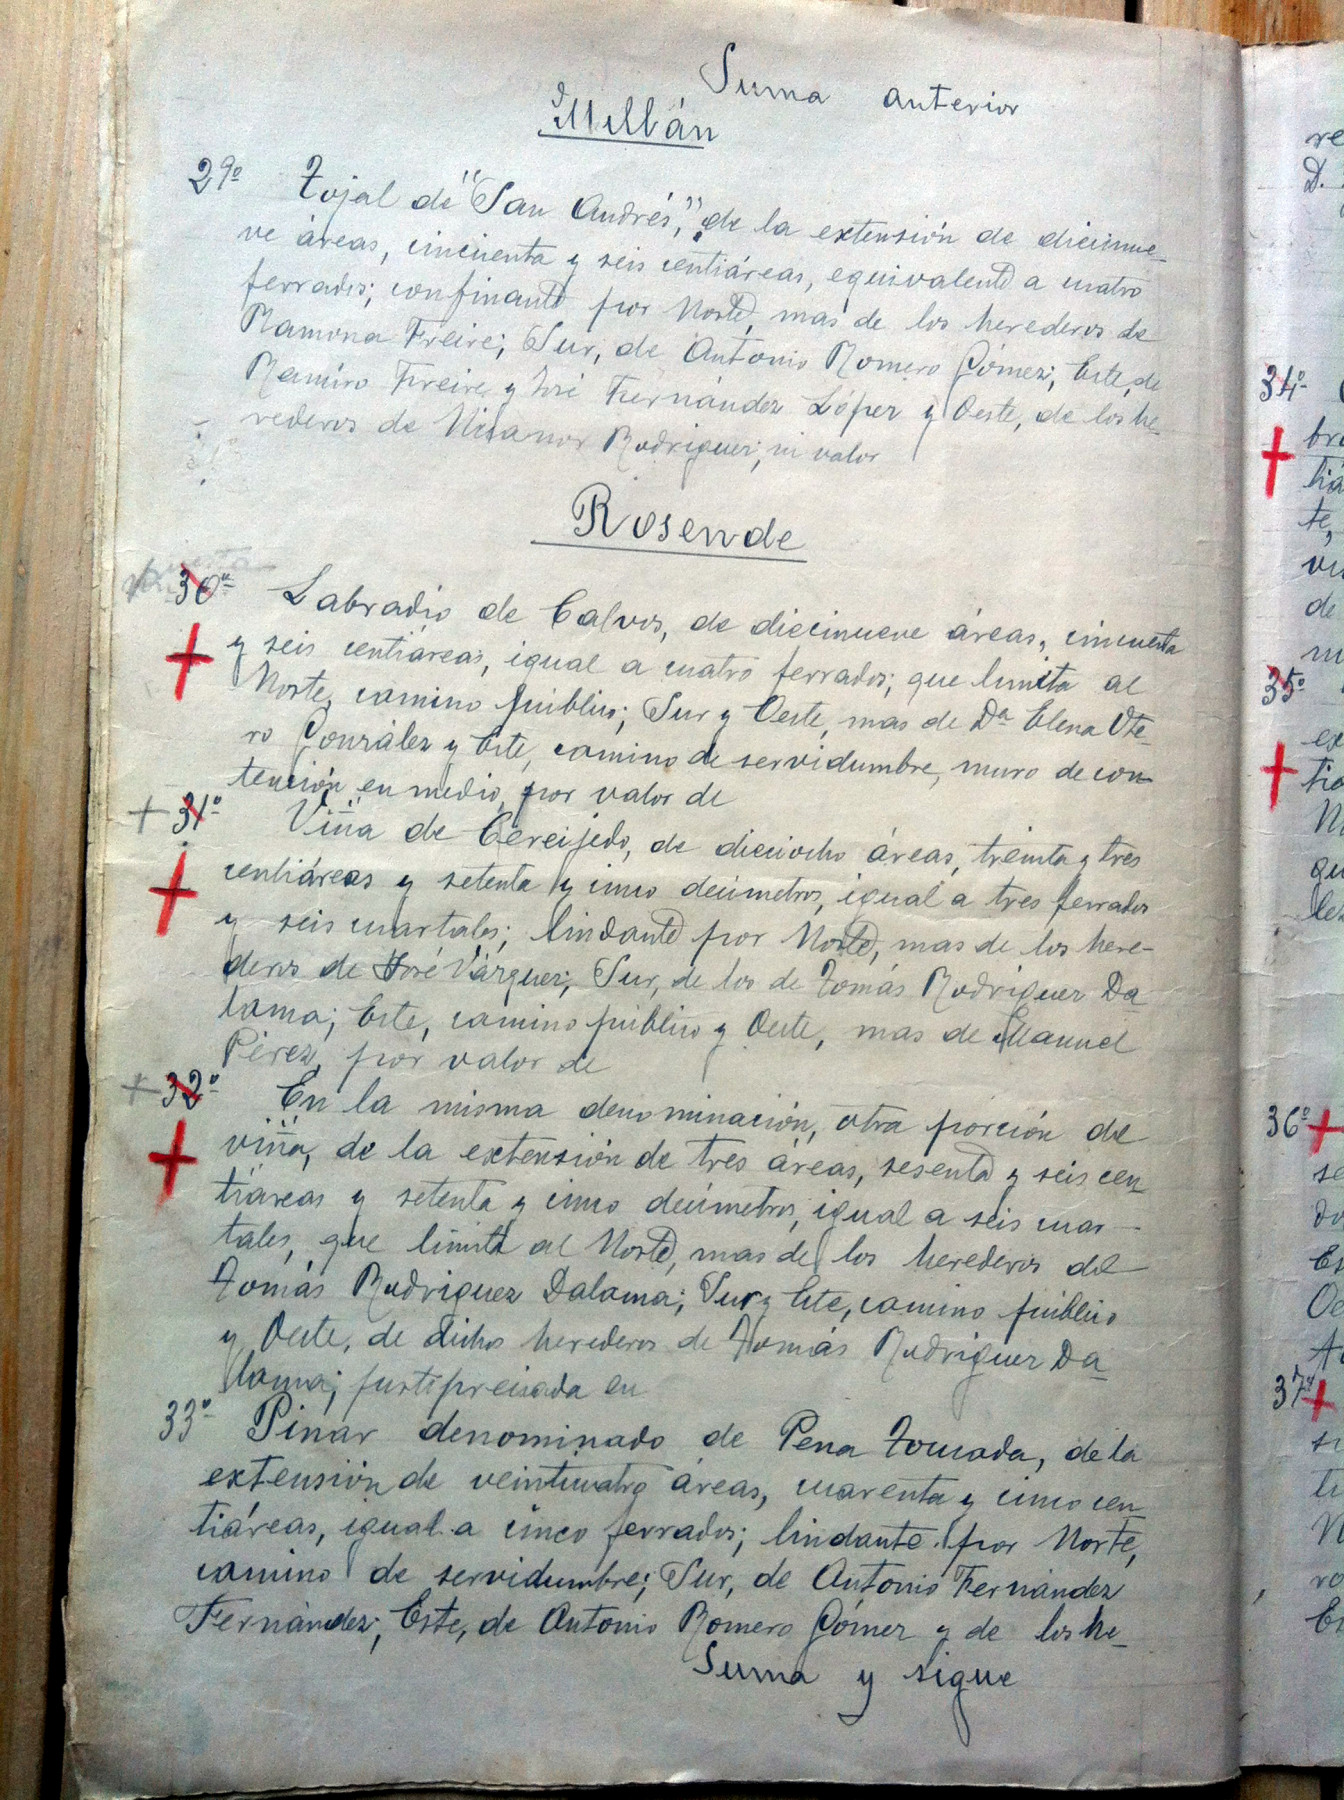 Suma anterior
Millán
29º Tojal de "San Andrés", de la extensión de diecinue-
ve áreas, cincuenta y seis centiáreas, equivalente a cuatro
ferrados; confinante por Norte, mas de los herederos de
Ramona Freire; Sur, de Antonio Romero Gómez; Este, de
Ramiro Freire y José Fernández López y Oeste, de los he-
rederos de Nicanor Rodriguez; su valor
Rosende
30º Labradio de Calvos, de diecinueve áreas, cincuenta
y seis centiáreas, igual a cuatro ferrados; que limita al
Norte, camino público; Sur y Oeste, mas de Dª Elena Ote-
ro González y Este, camino de servidumbre, muro de con-
tención en medio, por valor de
31º Viña de Cereijedo, de dieciocho áreas, treinta y tres
centiáreas y setenta y cinco decímetros, igual a tres ferrados
y seis cuartales; lindante por Norte, mas de los here-
deros de José Vázquez; Sur, de los de Tomás Rodríguez Da
lama; Este, camino público y Oeste, mas de Manuel
Pérez, por valor de
32º En la misma denominación, otra porción de
viña, de la extensión de tres áreas, sesenta y seis cen-
tiáreas y setenta y cinco decímetros, igual a seis cuar-
tales, que limita al Norte, mas de los herederos de
Tomás Rodriguez Dalama; Sur y Este, camino público
y Oeste, de dichos herederos de Tomás Rodriguez Da-
lama; justipreciada en
33º Pinar denominado de Pena Tomada, de la
extensión de veinticuatro áreas, cuarenta y cinco cen-
tiáreas, igual a cinco ferrados; lindante por Norte,
camino de servidumbre; Sur, de Antonio Fernández
Fernández; Este, de Antonio Romero Gómez y de los he-
Suma y sigue
re
D.
34º
bra
tiá
te,
de
35º
ex
tia
N
qu
36º
se
do
Es
37º
N
ro
Es